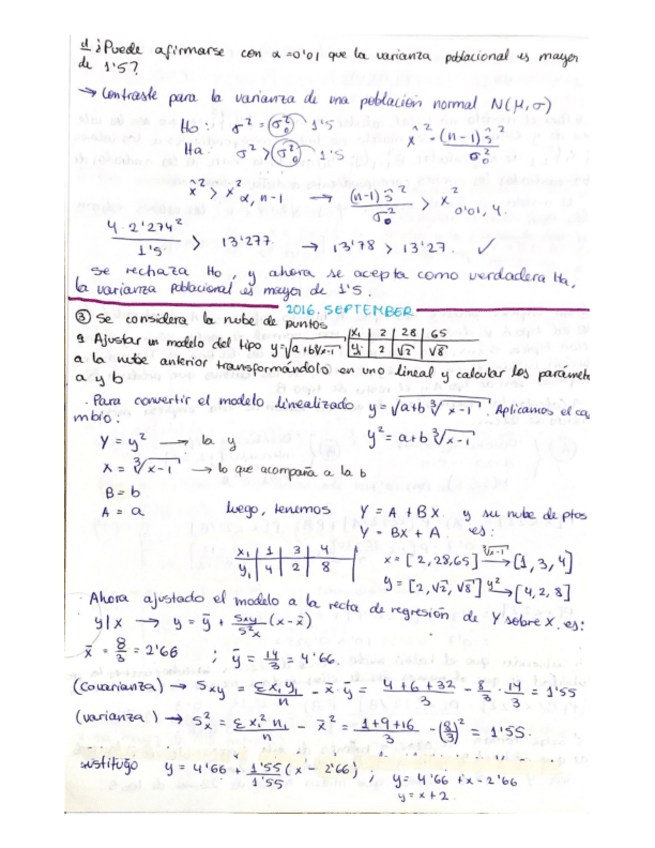 d ¿Puede afirmarse con α=0'01 que la varianza poblacional es mayor
de 1'5?
→ Contraste para la varianza de una población normal N(μ,σ)
Ho: σ² = σ₀² 1'5
Ha: σ² > σ₀² 1'5
x̂² = (n-1)ŝ² / σ₀²
x̂² > x²α, n-1 → (n-1)ŝ² / σ₀² > x²0'01, 4.
4·2'274² / 1'5 > 13'277. → 13'78 > 13'27. ✓
se rechaza Ho, y ahora se acepta como verdadera Ha,
la varianza poblacional es mayor de 1'5.
2016. SEPTEMBER
③ Se considera la nube de puntos
x₁ | 2 | 28 | 65
y₁ | 2 | √2 | √8
a Ajustar un modelo del tipo y=√(a+b∛(x-1))
a la nube anterior transformándo(o) en uno lineal y calcular los parámet
a y b
. Para convertir el modelo linealizado y = √(a+b ∛(x-1)). Aplicamos el ca
mbio:
y² = a+b ∛(x-1)
Y = y² → la y
X = ∛(x-1) → lo que acompaña a la b
B = b
A = a
luego, tenemos Y = A + BX. y su nube de ptos
Y = BX + A. es:
x₁ | 1 | 3 | 4
y₁ | 4 | 2 | 8
x = [2,28,65] ∛(x-1)→ [1,3,4]
y = [2,√2,√8] y²→ [4,2,8]
. Ahora ajustado el modelo a la recta de regresión de Y sobre X. es:
y|x → y = ȳ + Sxy/S²x (x-x̄)
x̄ = 8/3 = 2'66 ; ȳ = 14/3 = 4'66.
(covarianza) → Sxy = Σx₁y₁/n - x̄·ȳ = (4+6+32)/3 - 8/3 · 14/3 = 1'55
(varianza) → S²x = Σx₁²n₁/n - x̄² = (1+9+16)/3 - (8/3)² = 1'55.
sustituyo y = 4'66 + 1'55/1'55 (x - 2'66) ; y = 4'66 + x - 2'66
y = x+2.